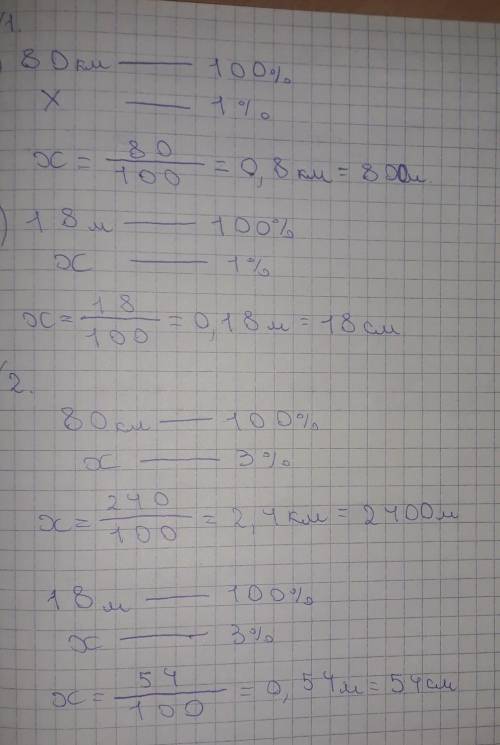 1.
80км — 100%
х — 1%
х = 80/100 = 0,8км = 800м
) 18м — 100%
х — 1%
х = 18/100 = 0,18м = 18см
2.
80км — 100%
х — 3%
х = 240/100 = 2,4км = 2400м
18м — 100%
х — 3%
х = 54/100 = 0,54м = 54см